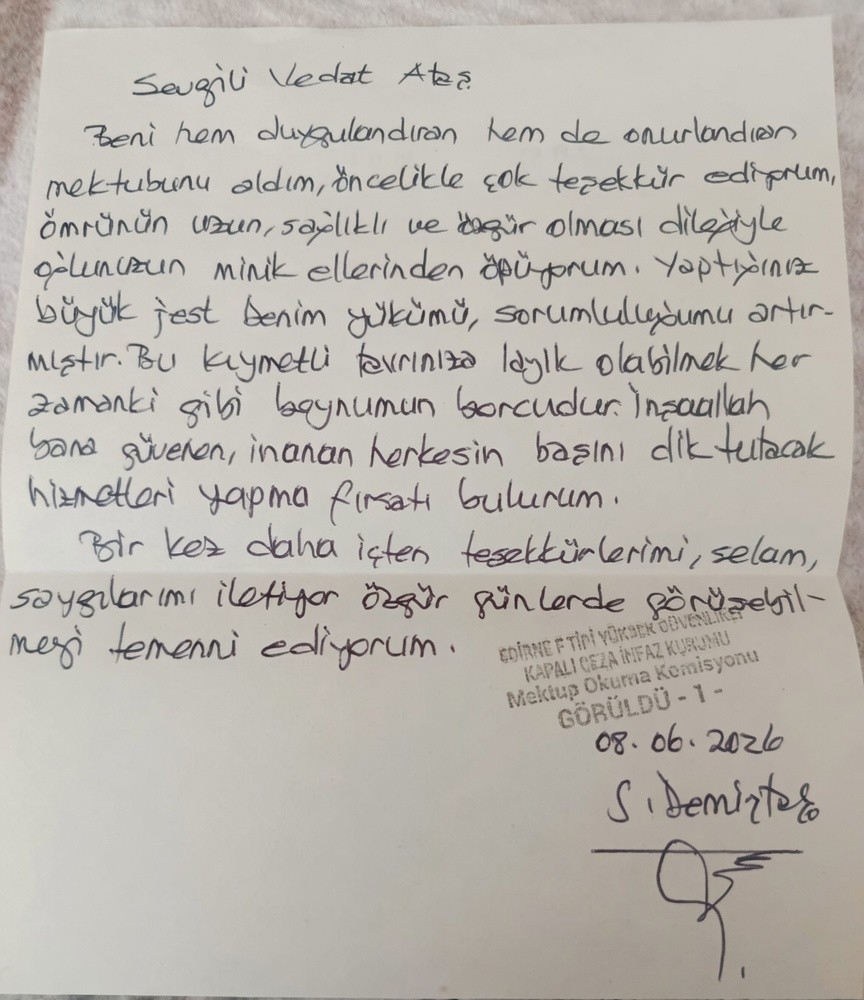 Sevgili Vedat Ateş
Beni hem duygulandıran hem de onurlandıran
mektubunu aldım, öncelikle çok teşekkür ediyorum,
ömrünün uzun, sağlıklı ve özgür olması dileğiyle
oğlunuzun minik ellerinden öpüyorum. Yaptığınız
büyük jest benim yükümü, sorumluluğumu artır-
mıştır. Bu kıymetli tavrınıza layık olabilmek her
zamanki gibi boynumun borcudur. İnşaallah
bana güvenen, inanan herkesin başını dik tutacak
hizmetleri yapma fırsatı bulurum.
Bir kez daha içten teşekkürlerimi, selam,
saygılarımı iletiyor özgür günlerde görüşebil-
meyi temenni ediyorum.
EDİRNE F TİPİ YÜKSEK GÜVENLİKLİ
KAPALI CEZA İNFAZ KURUMU
Mektup Okuma Komisyonu
GÖRÜLDÜ - 1 -
08.06.2026
S. Demirtaş